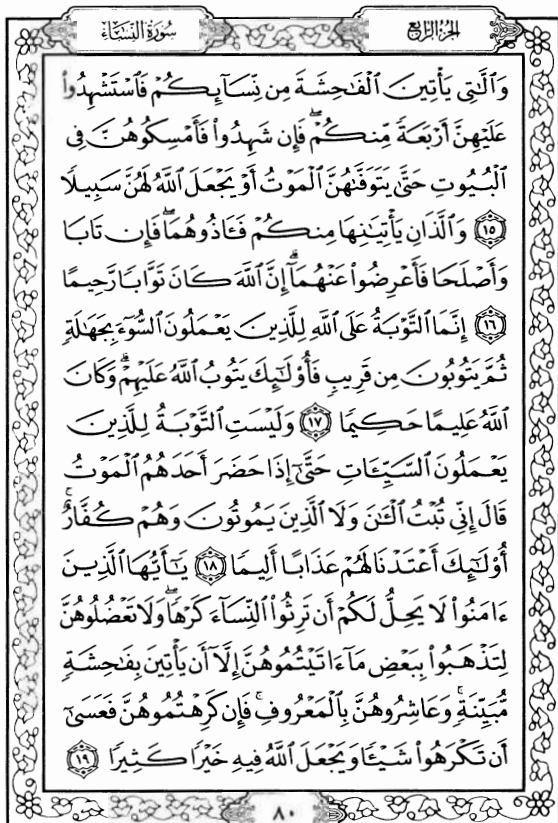 الجزء الرابع
سورة النساء
وَٱلَّٰتِي يَأۡتِينَ ٱلۡفَٰحِشَةَ مِن نِّسَآئِكُمۡ فَٱسۡتَشۡهِدُواْ
عَلَيۡهِنَّ أَرۡبَعَةٗ مِّنكُمۡۖ فَإِن شَهِدُواْ فَأَمۡسِكُوهُنَّ فِي
ٱلۡبُيُوتِ حَتَّىٰ يَتَوَفَّىٰهُنَّ ٱلۡمَوۡتُ أَوۡ يَجۡعَلَ ٱللَّهُ لَهُنَّ سَبِيلٗا
١٥ وَٱلَّذَانِ يَأۡتِيَٰنِهَا مِنكُمۡ فَـَٔاذُوهُمَاۖ فَإِن تَابَا
وَأَصۡلَحَا فَأَعۡرِضُواْ عَنۡهُمَآۗ إِنَّ ٱللَّهَ كَانَ تَوَّابٗا رَّحِيمًا
١٦ إِنَّمَا ٱلتَّوۡبَةُ عَلَى ٱللَّهِ لِلَّذِينَ يَعۡمَلُونَ ٱلسُّوٓءَ بِجَهَٰلَةٖ
ثُمَّ يَتُوبُونَ مِن قَرِيبٖ فَأُوْلَٰٓئِكَ يَتُوبُ ٱللَّهُ عَلَيۡهِمۡۗ وَكَانَ
ٱللَّهُ عَلِيمًا حَكِيمٗا ١٧ وَلَيۡسَتِ ٱلتَّوۡبَةُ لِلَّذِينَ
يَعۡمَلُونَ ٱلسَّيِّـَٔاتِ حَتَّىٰٓ إِذَا حَضَرَ أَحَدَهُمُ ٱلۡمَوۡتُ
قَالَ إِنِّي تُبۡتُ ٱلۡـَٰٔنَ وَلَا ٱلَّذِينَ يَمُوتُونَ وَهُمۡ كُفَّارٌۚ
أُوْلَٰٓئِكَ أَعۡتَدۡنَا لَهُمۡ عَذَابًا أَلِيمٗا ١٨ يَٰٓأَيُّهَا ٱلَّذِينَ
ءَامَنُواْ لَا يَحِلُّ لَكُمۡ أَن تَرِثُواْ ٱلنِّسَآءَ كَرۡهٗاۖ وَلَا تَعۡضُلُوهُنَّ
لِتَذۡهَبُواْ بِبَعۡضِ مَآ ءَاتَيۡتُمُوهُنَّ إِلَّآ أَن يَأۡتِينَ بِفَٰحِشَةٖ
مُّبَيِّنَةٖۚ وَعَاشِرُوهُنَّ بِٱلۡمَعۡرُوفِۚ فَإِن كَرِهۡتُمُوهُنَّ فَعَسَىٰٓ
أَن تَكۡرَهُواْ شَيۡـٔٗا وَيَجۡعَلَ ٱللَّهُ فِيهِ خَيۡرٗا كَثِيرٗا ١٩
٨٠